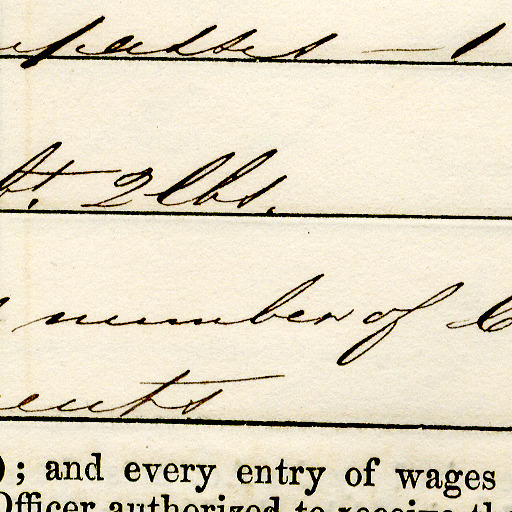 — 1
t. 2 lbs.
number of
ents
); and every entry of wages
Officer authorized to receive th